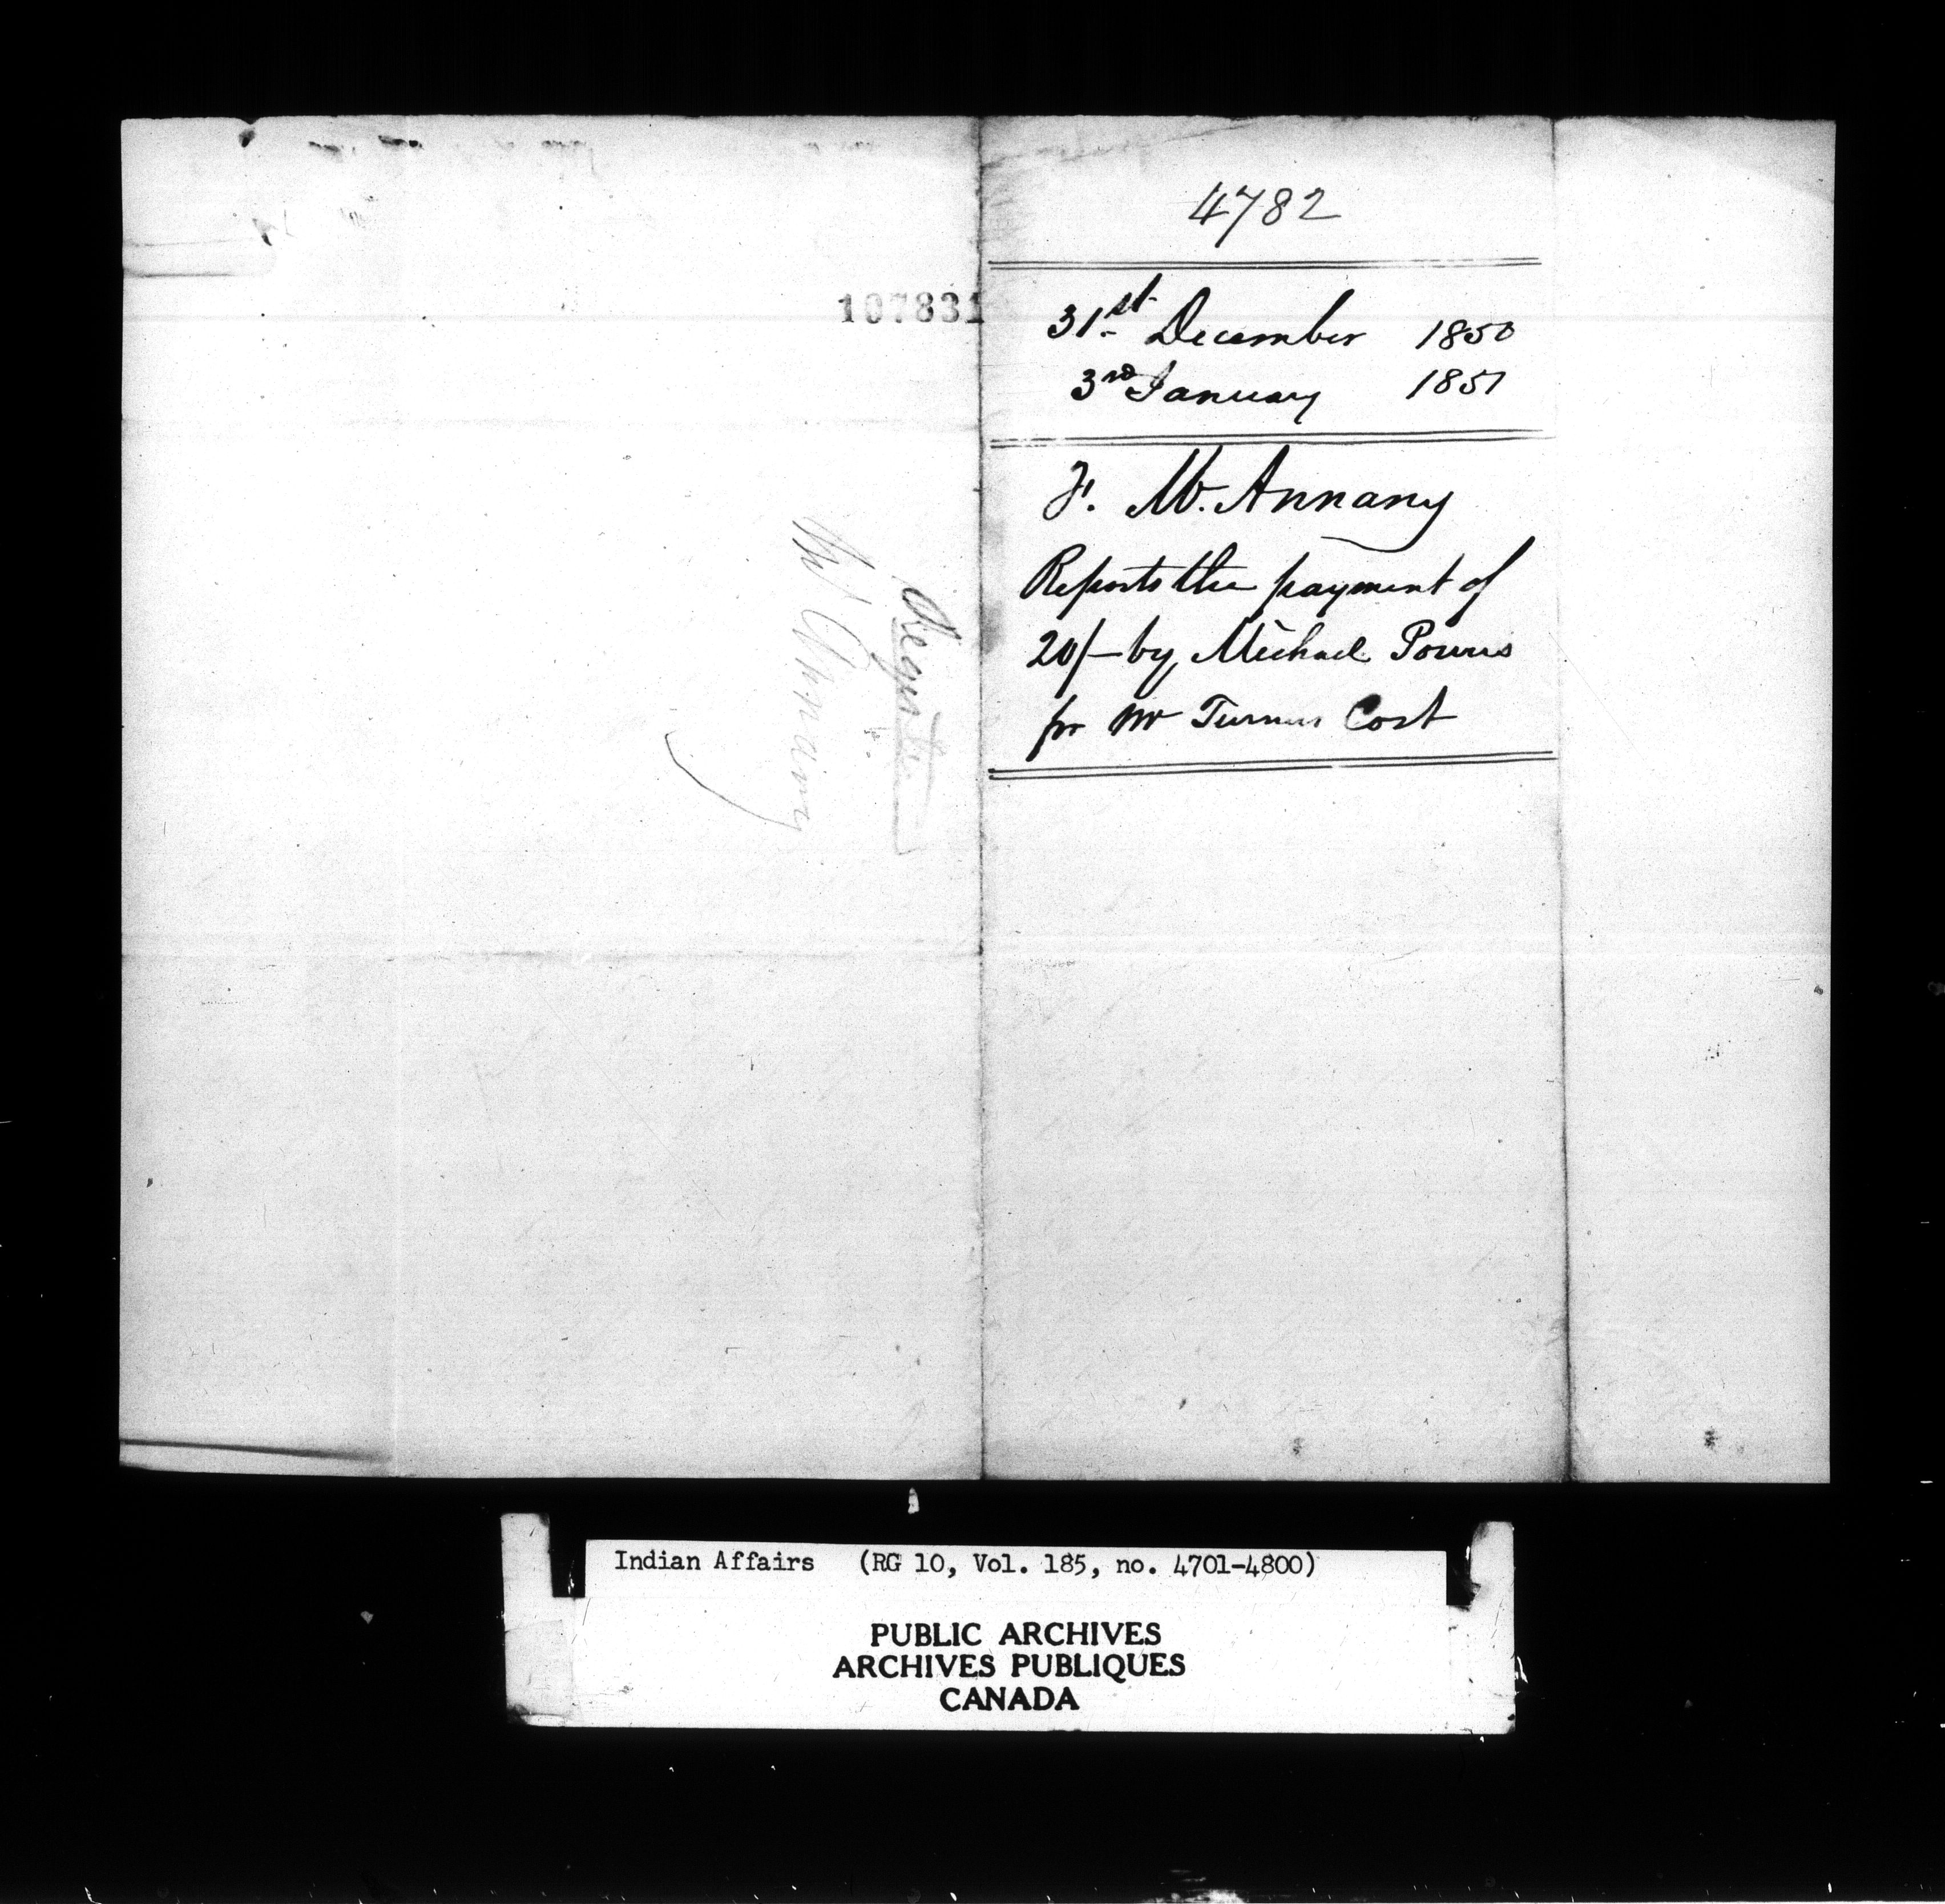 107831
Register
McAnnany
4782
31st December 1850
3rd January 1851
F. McAnnany
Reports the payment of
20/- by Michael Powers
for Mr Turners Cost
Indian Affairs (RG 10, Vol. 185, no. 4701-4800)
PUBLIC ARCHIVES
ARCHIVES PUBLIQUES
CANADA